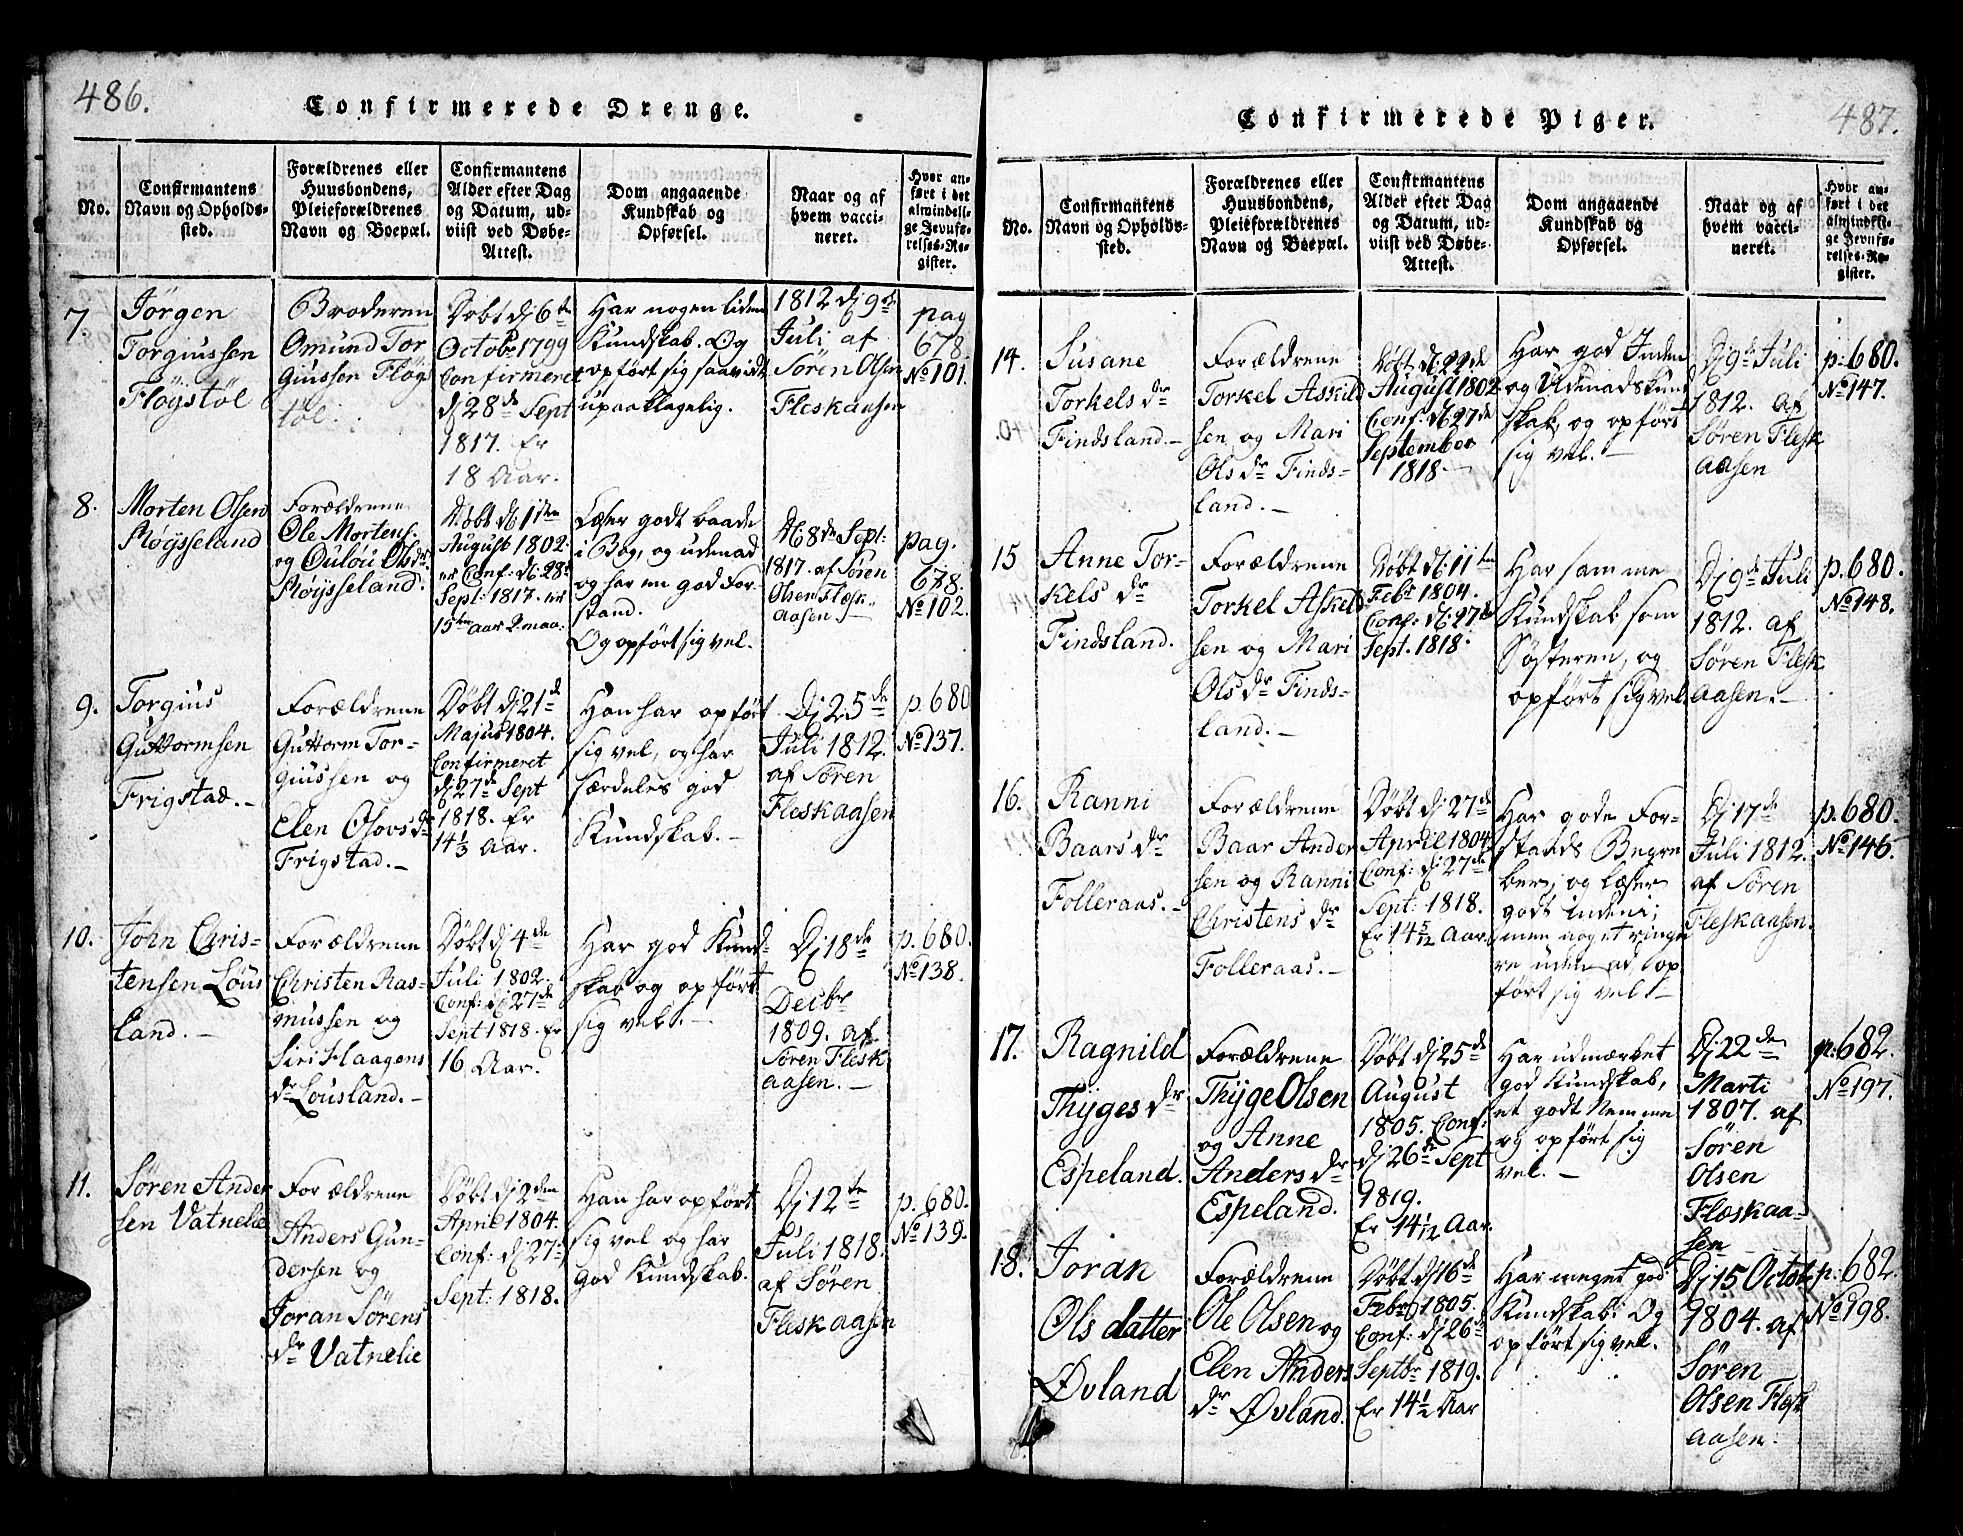 486.
Confirmerede Drenge.
No.
Confirmantens
Navn og Opholds-
sted.
Forældrenes eller
Huusbondens,
Pleieforældrenes
Navn og Boepæl.
Confirmantens
Alder efter Dag
og Datum, ud-
viist ved Døbe-
Attest.
Dom angaaende
Kundskab og
Opførsel.
Naar og af
hvem vacci-
neret.
Hvor an-
ført i det
almindeli-
ge Jevnfø-
relses-Re-
gister.
7.
Jörgen
Torgiussen
Flögstöl
Broderen
Omund Tor
giussen Flögs
töl.
Døbt dj 6te
Octobr 1799
Confirmeret
dj 28de Sept
1817. Er
18 Aar.
Har nogen liden
Kundskab. Og
opført sig saavidt
upaaklagelig.
1812 dj 9de
Juli af
Sören Olsen
Fleskaasen
pag
678.
No 101.
8.
Morten Olsen
Røÿsseland
Forældrene
Ole Mortens:
og Oulöu Olsdr
Røÿsseland.
Døbt d: 1ste
August 1802.
er Conf: d: 28de
Sept: 1817. er
15ten Aar 2 maa:
Læser godt baade
i Bog, og udenad
og har en god For-
stand.
Og opført sig vel.
D: 8de Sept:
1817. af Søren
Olsen Flesk-
aasen.
pag.
678.
No 102.
9.
Torgius
Guttormsen
Frigstad.
Forældrene
Guttorm Tor-
giussen og
Elen Osovsdr
Frigstad.
Døbt dj 21de
Majus 1804.
Confirmeret
dj 27de Sept
1818. Er
14 1/3 Aar.
Han har opført
sig vel, og har
særdeles god
Kundskab.
Dj 25de
Juli 1812.
af Søren
Fleskaasen
p. 680
No 137.
10.
John Chris-
tensen Löus
land.
Forældrene
Christen Ras-
mussen og
Siri Haagens
dr Lousland.
Døbt dj 4de
Juli 1802.
Conf: dj 27de
Sept 1818. Er
16 Aar.
Har god Kund-
skab og opført
sig vel.
Dj 18de
Decbr
1809. af
Søren Flesk
aasen.
p. 680.
No 138.
11.
Sören Ander
sen Vatnelie
Forældrene
Anders Gun-
dersen og
Joran Sörens
dr Vatnelie
Døbt dj 2den
April 1804.
Conf: dj 27de
Sept: 1818.
Han har opført
sig vel og har
god Kundskab.
Dj 12te
Juli 1818.
af Søren
Fleskaasen
p. 680.
No 139.
487.
Confirmerede Piger.
No.
Confirmantens
Navn og Opholds-
sted.
Forældrenes eller
Huusbondens,
Pleieforældrenes
Navn og Boepæl.
Confirmantens
Alder efter Dag
og Datum, ud-
viist ved Døbe-
Attest.
Dom angaaende
Kundskab og
Opførsel.
Naar og af
hvem vacci-
neret.
Hvor an-
ført i det
almindeli-
ge Jevnfø-
relses-Re-
gister.
14.
Susane
Torkels dr
Findsland.
Forældrene
Torkel Askild
sen og Mari
Ols dr Finds-
land.
Døbt d: 22de
August 1802
Conf: d: 27de
September
1818.
Har god Inden
og Udenadskund
skab, og opført
sig vel.
Dj 9de Juli
1812. af
Søren Flesk
aasen
p: 680.
No 147.
15
Anne Tor-
kels dr
Findsland.
Forældrene
Torkel Askild
sen og Mari
Ols dr Finds-
land.
Døbt d: 11ten
Febr 1804.
Conf: d: 27de
Sept. 1818.
Har samme
Kundskab som
Søsteren, og
opført sig vel.
Dj 9de Juli
1812. af
Søren Flesk
aasen.
p. 680.
No 148.
16.
Ranni
Baars dr
Folleraas.
Forældrene
Baar Ander
sen og Ranni
Christens dr
Folleraas.
Døbt dj 27de
April 1804
Conf: dj 27de
Sept: 1818.
Er 14 5/12 Aar
Har gode For-
stands Begre
ber, og læser
godt indeni;
men noget ringe
re uden ad, op
ført sig vel
Dj 17de
Juli 1812.
af Søren
Fleskaasen.
p. 680.
No 146.
17.
Ragnild
Thÿges dr
Espeland.
Forældrene
Thÿge Olsen
og Anne
Anders dr
Espeland.
Døbt dj 25de
August
1805. Conf:
dj 26de Sept
1819.
Er 14 1/12 Aar.
Har udmærket
god Kundskab,
et godt Nemme
og opført sig
vel.
Dj 22de
Marti
1807. af
Søren
Olsen
Flæskaa-
sen
p: 682.
No 197.
18.
Joran
Ols datter
Øvland
Forældrene
Ole Olsen og
Elen Anders
dr Øvland.
Døbt dj 16de
Febr 1805.
Conf: dj 26de
Septbr 1819.
Er 14 1/2 Aar
Har meget god
Kundskab. Og
opført sig vel.
Dj 15 Octob
1804. af
Søren
Olsen Flesk
aasen.
p: 682.
No 198.